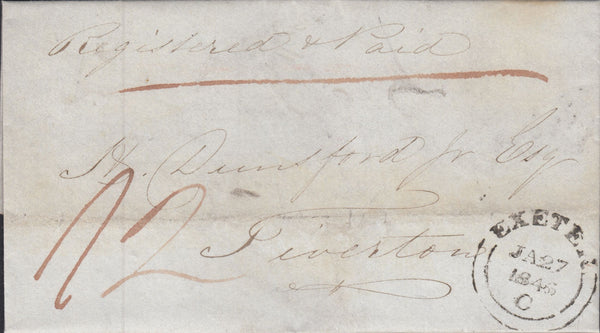 Registered & Paid
H. Dunsford Jr Esq
Tiverton
12
EXETER
JA 27
1845
C